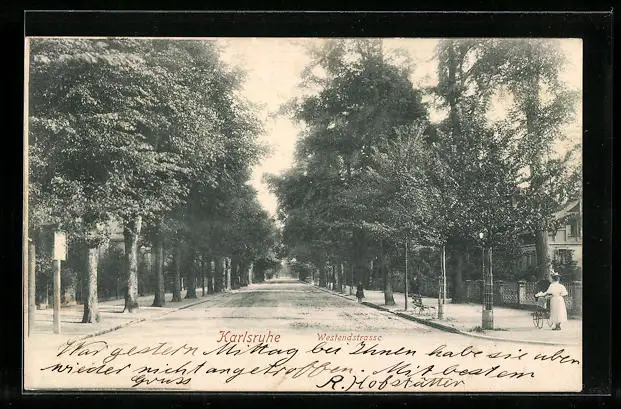 Karlsruhe Westendstrasse
War gestern Mittag bei Ihnen habe sie aber
wieder nicht angetroffen. Mit bestem
Gruss R. Hofstätter